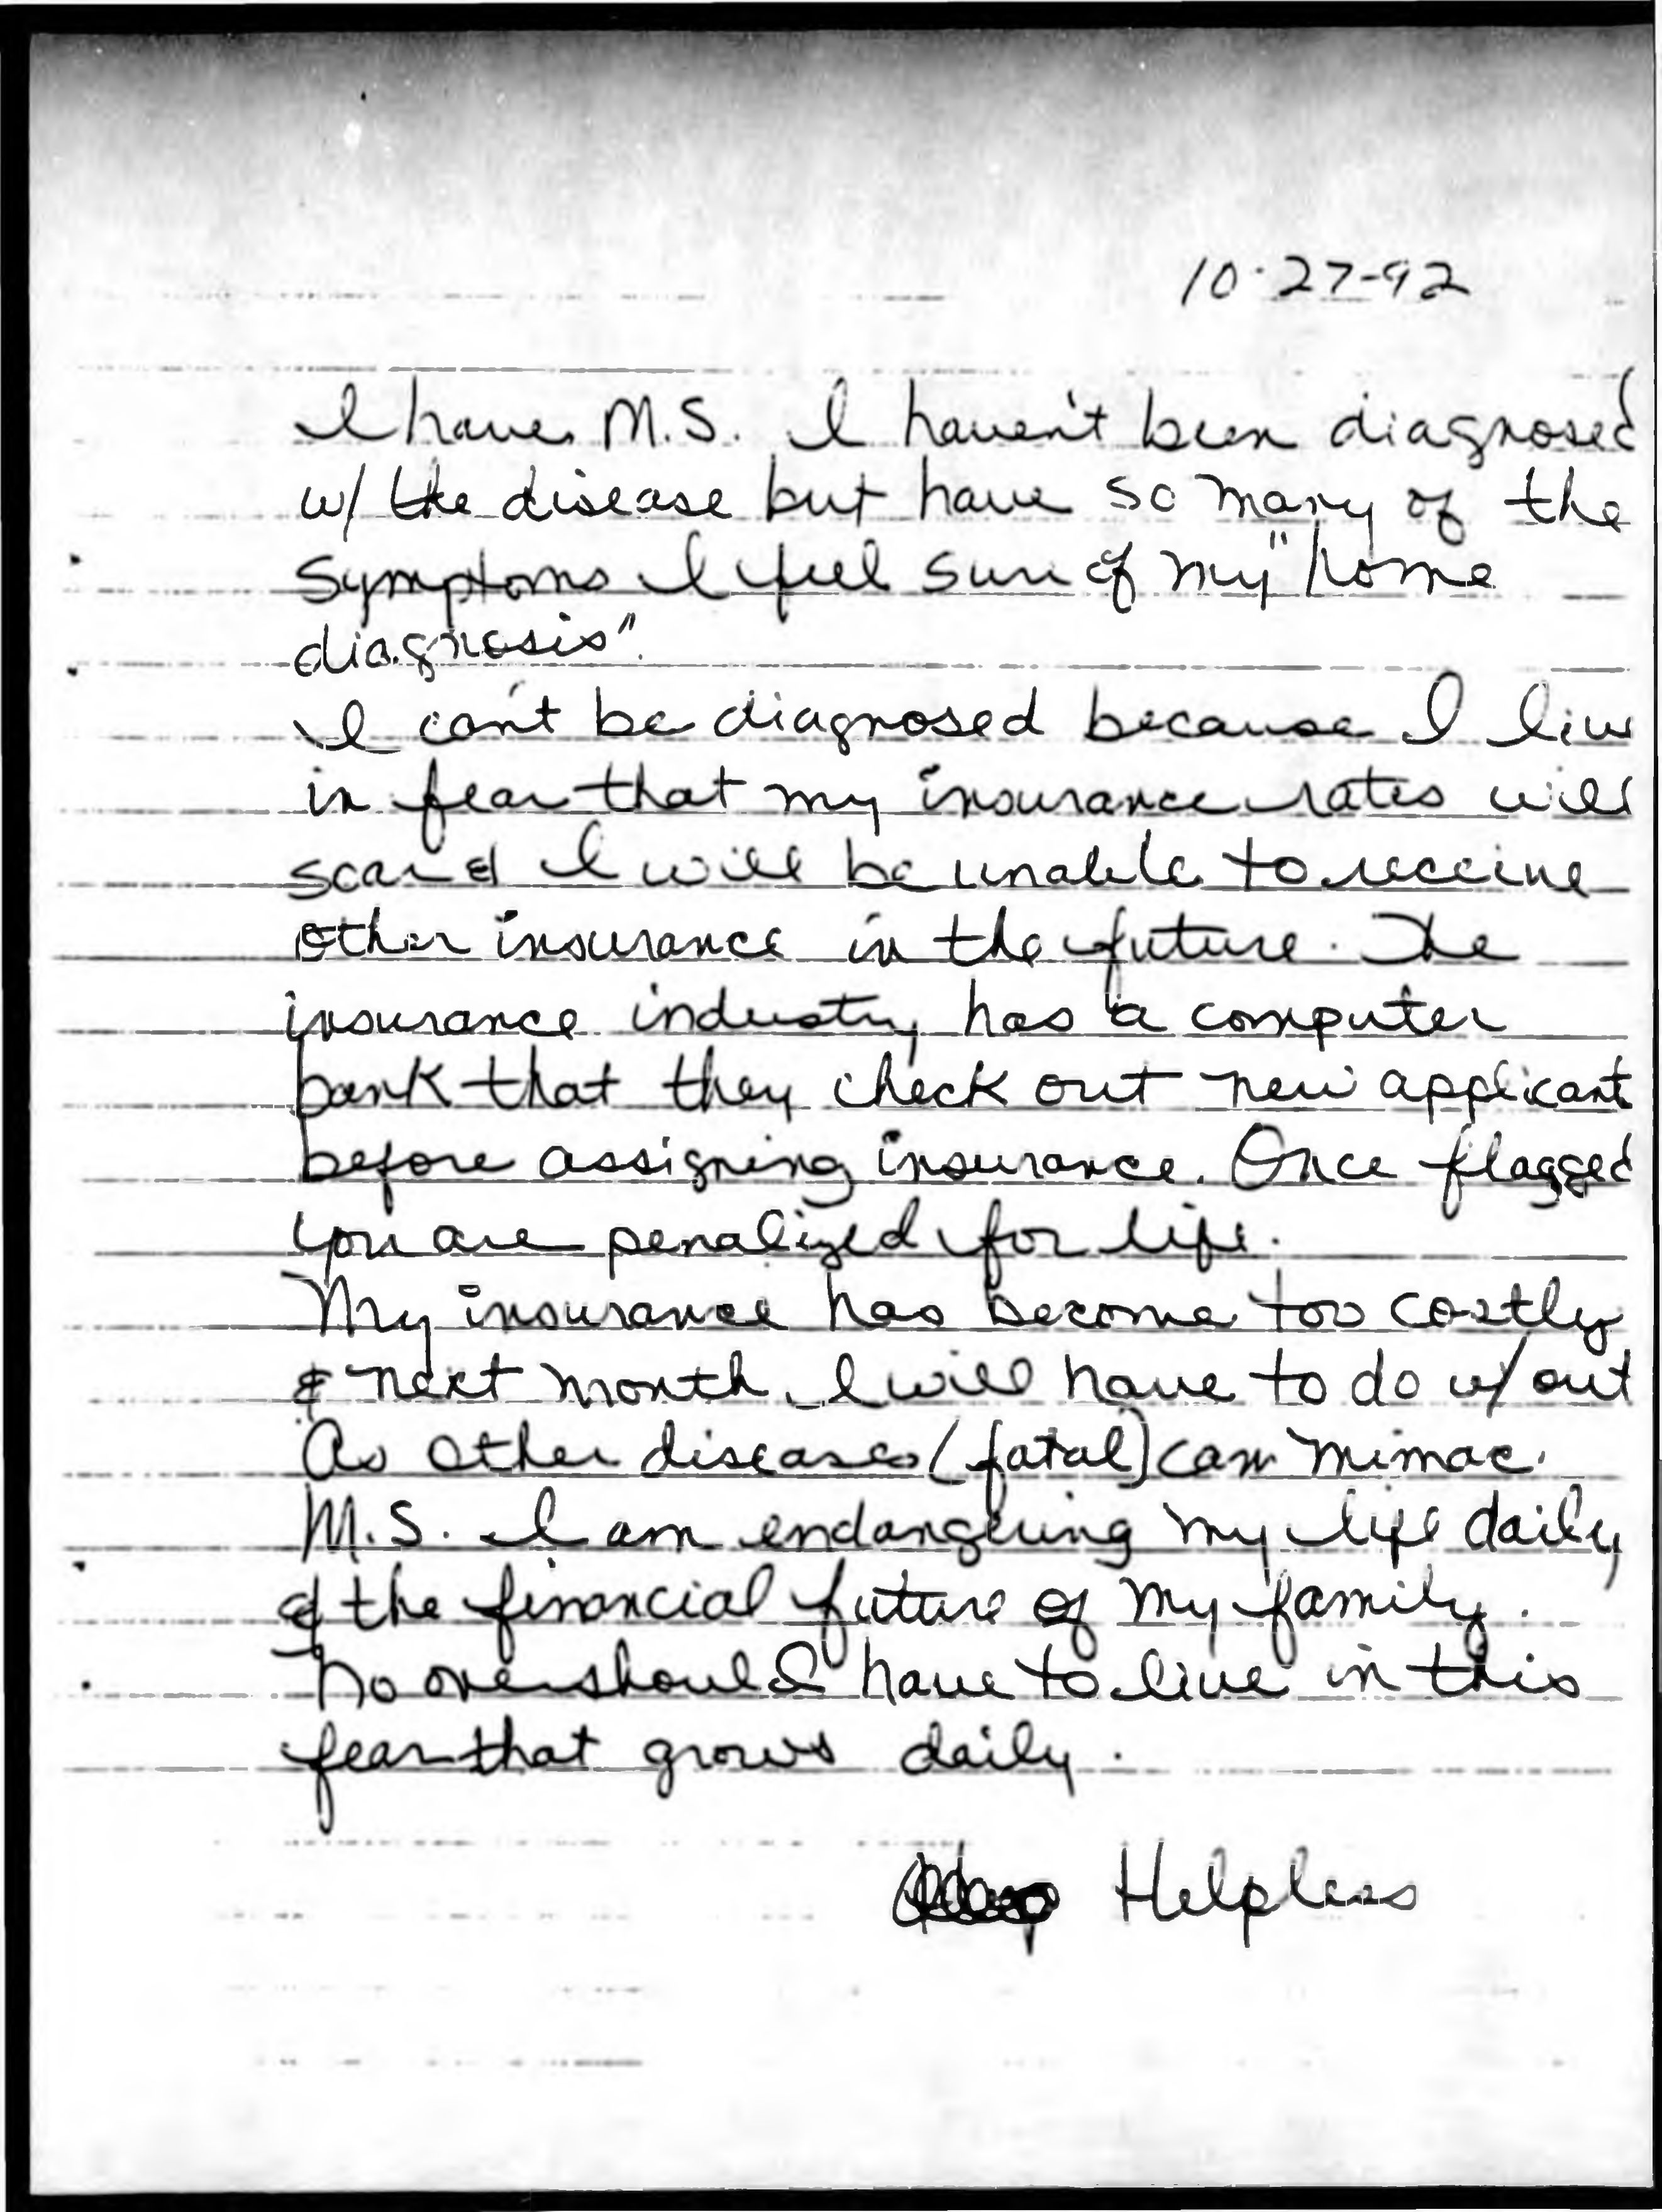 10-27-92
I have M.S. I haven't been diagnosed
w/ the disease but have so many of the
symptoms I feel sure of my "home
diagnosis".
I can't be diagnosed because I live
in fear that my insurance rates will
soar & I will be unable to receive
other insurance in the future. The
insurance industry has a computer
bank that they check out new applicant
before assigning insurance. Once flagged
you are penalized for life.
My insurance has become too costly
& next month I will have to do w/out
As other diseases (fatal) can mimac
M.S. I am endangering my life daily,
& the financial future of my family.
No one should have to live in this
fear that grows daily.
Helpless